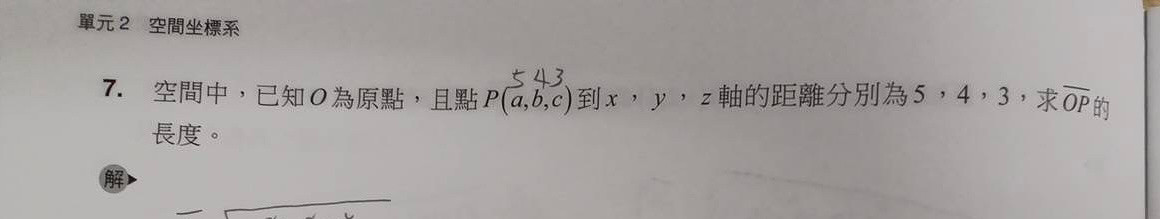 單元2 空間坐標系
5 4 3
7. 空間中，已知O為原點，且點P(a,b,c)到x，y，z軸的距離分別為5，4，3，求OP的
長度。
解